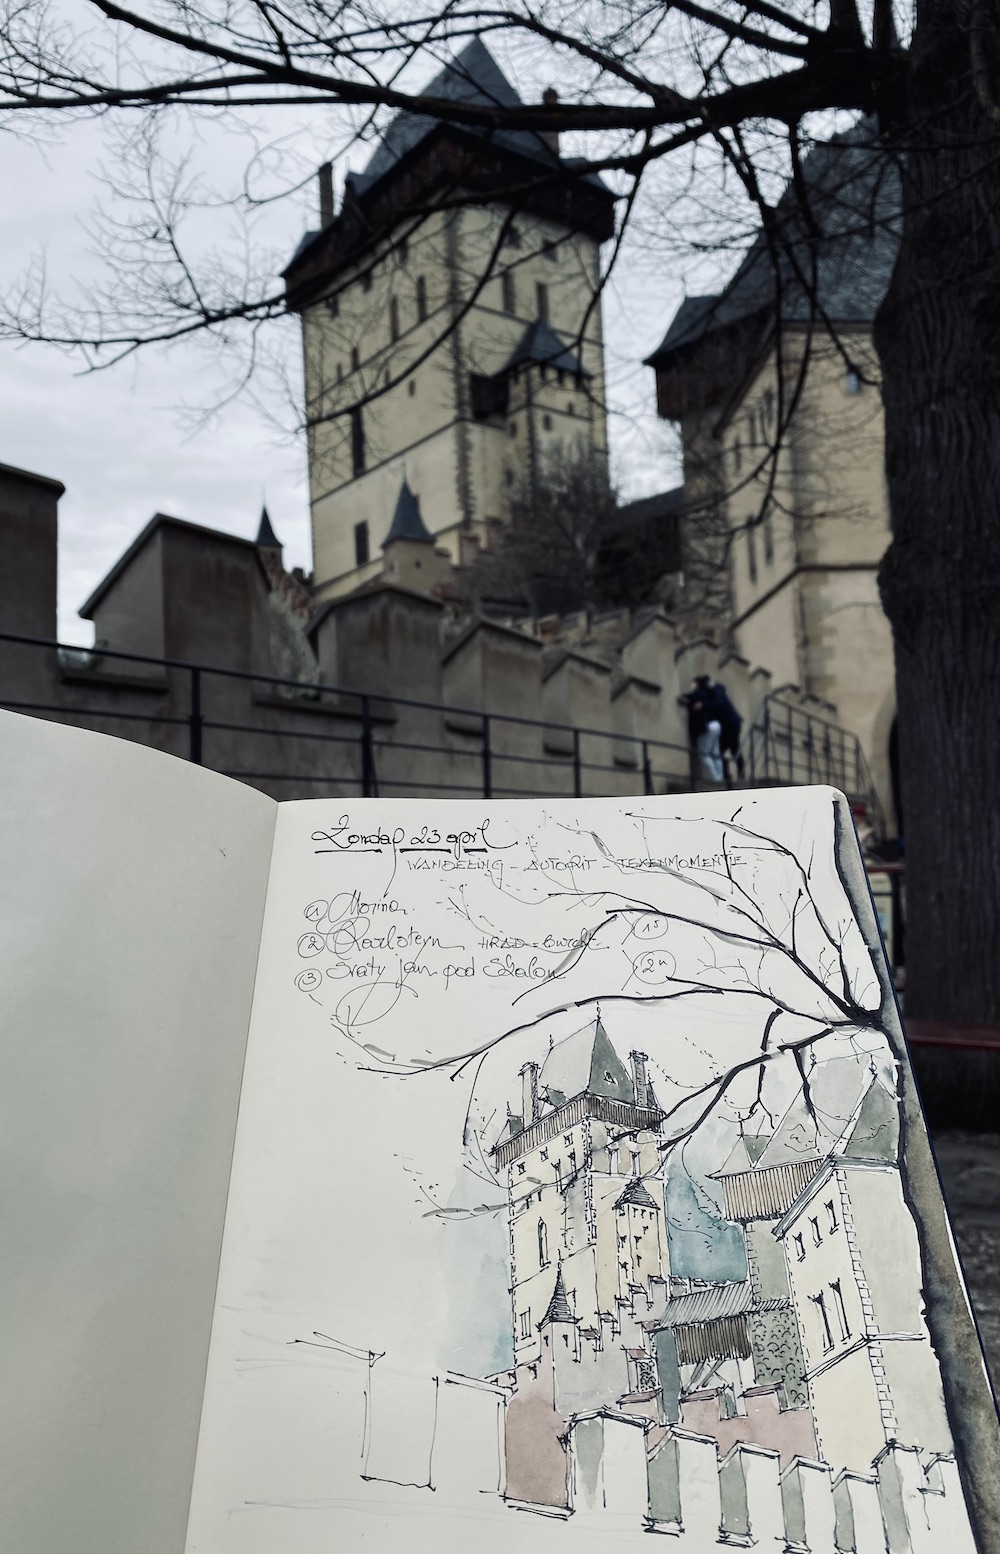 Zondag 23 april
WANDELING - AUTORIT - TEKENMOMENTJE
① Morina
② Karlsteyn HRAD = burcht 1ˢ
③ Svaty jan pod Skalou 2ⁿ